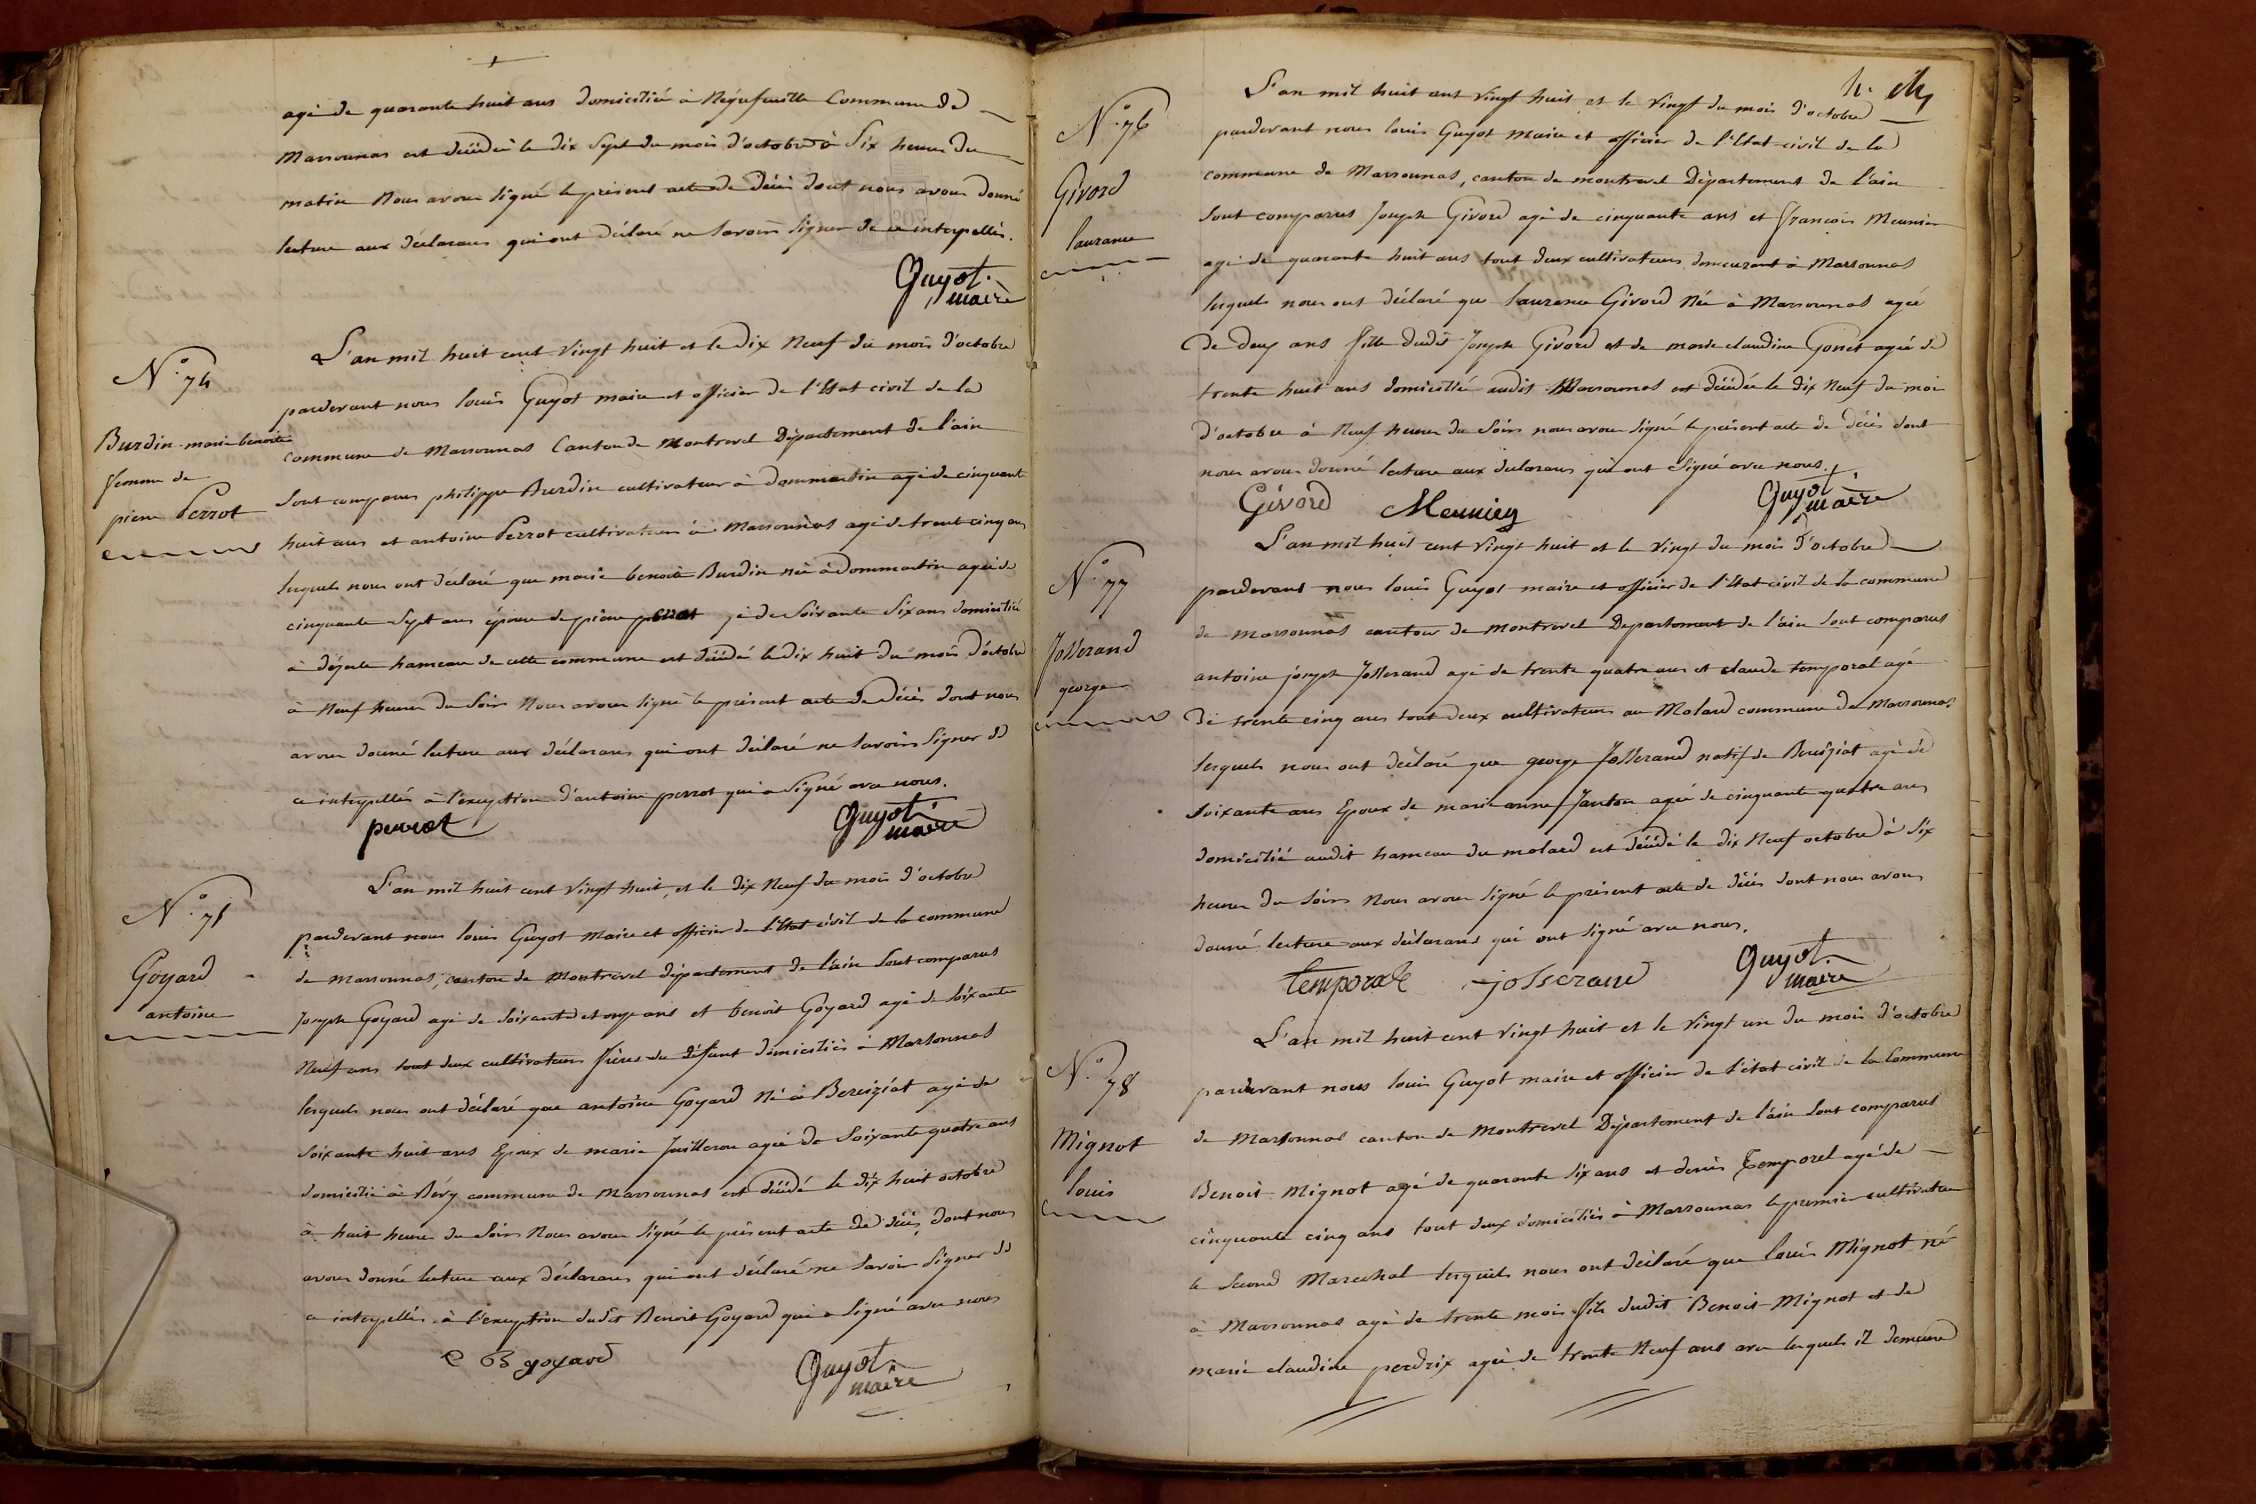 agé de quarante huit ans domicilié à Commune de
Marsonnas est décédé le dix Sept du mois d'octobre à Six heures du
matin Nous avons signé le présent acte de décès dont nous avons donné
lecture aux déclarans qui ont déclaré ne savoir signer de ce interpellés.
Guyot
maire
N.° 74
Burdin marie benoite
femme de
pierre Perrot
L'an mil huit cent vingt huit et le dix Neuf du mois d'octobre
pardevant nous louis Guyot maire et officier de l'Etat civil de la
commune de Marsonnas Canton de Montrevel Département de l'ain
sont comparus philippe Burdin cultivateur à dommartin agé de cinquante
huit ans et antoine Perrot cultivateur à Marsonnas agé de trente cinq ans
lesquels nous ont déclaré que marie benoite Burdin née à Dommartin agée de
cinquante Sept ans épouse de pierre perrot gé de Soixante Six ans domicilié
à hameau de cette commune est décédé le dix huit du mois d'octobre
à Neuf heures du Soir Nous avons signé le présent acte de décès dont nous
avons donné lecture aux déclarans qui ont déclaré ne savoir Signer de
ce interpellés à l'exception d'antoine perrot qui a Signé avec nous.
perrot
Guyot
maire
N.° 75
Goyard
antoine
L'an mil huit cent vingt huit, et le dix Neuf du mois d'octobre
pardevant nous louis Guyot Maire et officier de l'Etat civil de la commune
de Marsonnas, canton de Montrevel département de l'ain Sont comparus
Joseph Goyard agé de soixante et onze ans et benoit Goyard agé de soixante
Neuf ans tout deux cultivateurs frères du défunt domiciliés à Marsonnas
lesquels nous ont déclaré que antoine Goyard Né à Bereiziat agé de
soixante huit ans Epoux de marie Juilleron agée de Soixante quatre ans
domicilié à Béry commune de Marsonnas est décédé le dix huit octobre
à huit heures du Soir Nous avons signé le présent acte de décès, dont nous
avons donné lecture aux déclarans qui ont déclaré ne savoir Signer de
ce interpellés à l'exception dudit Benoit Goyard qui a signé avec nous
B goyard
Guyot
maire
N.° 76
Givord
laurance
L'an mil huit cent vingt huit et le vingt du mois d'octobre
pardevant nous louis Guyot maire et officier de l'Etat civil de la
commune de Marsonnas, canton de montrevel Département de l'ain
sont comparus Joseph Givord agé de cinquante ans et François Meunier
agé de quarante huit ans tout deux cultivateurs demeurant à Marsonnas
lesquels nous ont déclaré que laurance Givord Née à Marsonnas agée
de deux ans fille dudit Joseph Givord et de marie claudine Gonet agée de
trente huit ans domicillié audit Marsonnas est décédée le dix Neuf du mois
d'octobre à Neuf heures du Soir nous avons signé le présent acte de décès dont
nous avons donné lecture aux déclarans qui ont signé avec nous.
Givord Meunier
Guyot
maire
N.° 77
Josserand
george
L'an mil huit cent vingt huit et le vingt du mois d'octobre
pardevant nous louis Guyot maire et officier de l'Etat civil de la commune
de Marsonnas canton de Montrevel Département de l'ain Sont comparus
antoine joseph Josserand agé de trente quatre ans et claude temporal agé
de trente cinq ans tout deux cultivateurs au Molard commune de Marsonnas
lesquels nous ont déclaré que george Josserand natif de Bereiziat agé de
soixante ans Epoux de marie anne Janton agée de cinquante quatre ans
domicilié audit hameau du molard est décédé le dix Neuf octobre à Six
heures du soir Nous avons signé le présent acte de décès dont nous avons
donné lecture aux déclarans qui ont signé avec nous.
temporale josserand
Guyot
maire
N.° 78
Mignot
louis
L'an mil huit cent vingt huit et le vingt un du mois d'octobre
pardevant nous louis Guyot maire et officier de l'état civil de la Commune
de Marsonnas canton de Montrevel Département de l'ain Sont comparus
Benoit Mignot agé de quarante Six ans et denis Temporel agé de
cinquante cinq ans tout deux domiciliés à Marsonnas le premier cultivateur
le Second Marechal lesquels nous ont déclaré que louis Mignot né
à Marsonnas agé de trente mois fils dudit Benoit Mignot et de
marie claudine perdrix agée de trente Neuf ans avec lesquels il demeure